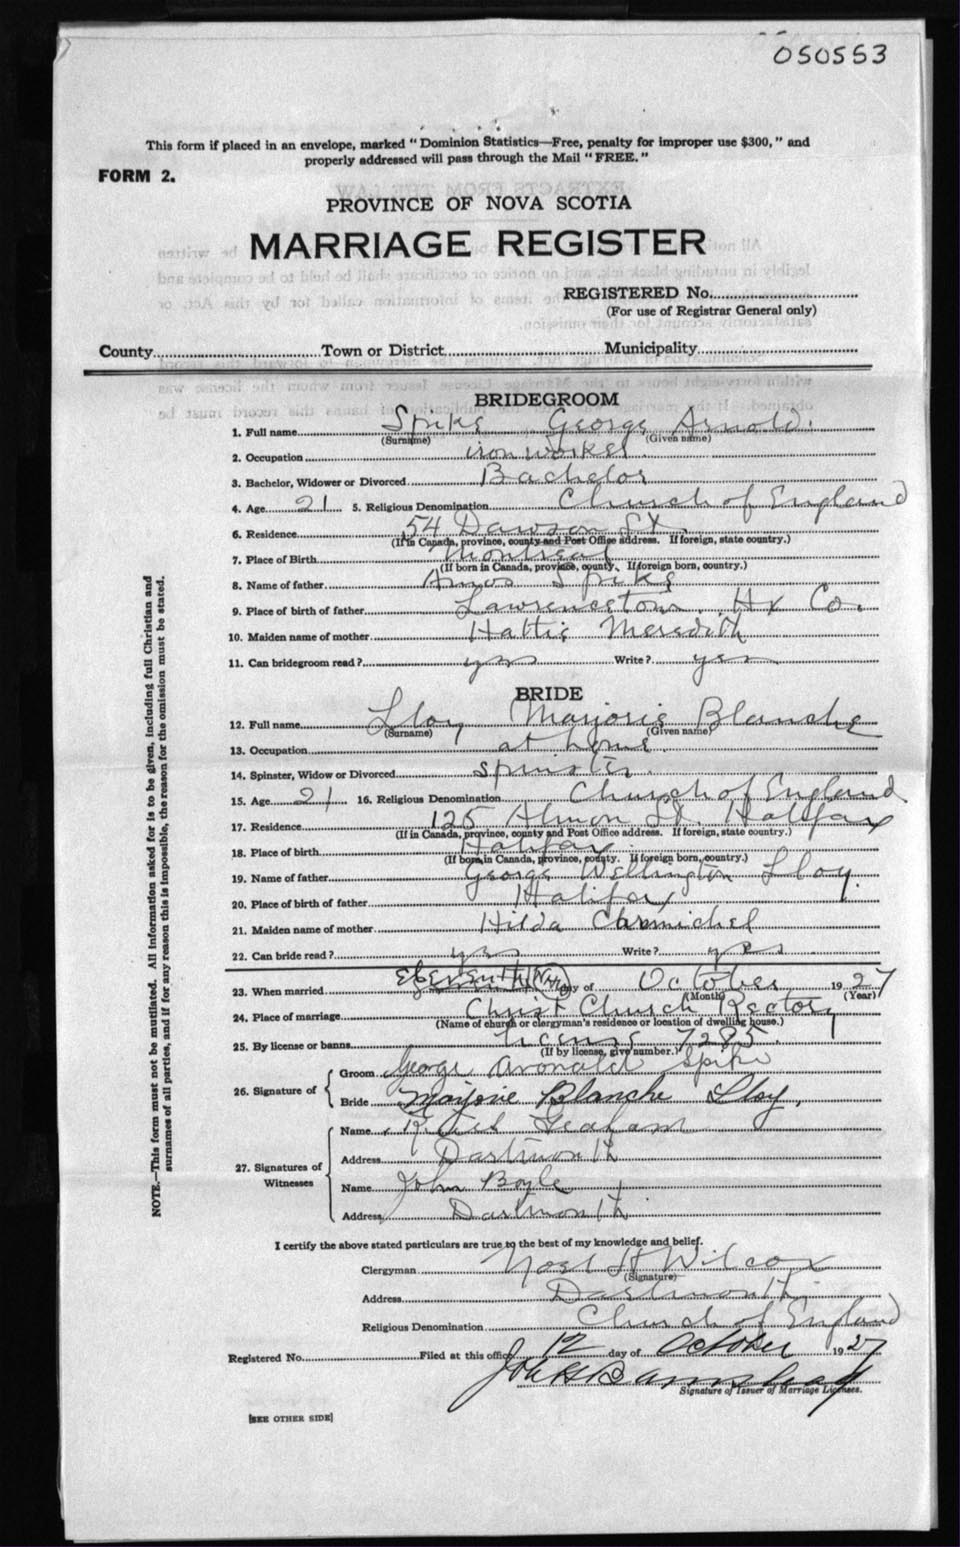 050553
This form if placed in an envelope, marked "Dominion Statistics—Free, penalty for improper use $300," and
properly addressed will pass through the Mail "FREE."
FORM 2.
PROVINCE OF NOVA SCOTIA
MARRIAGE REGISTER
REGISTERED No.
(For use of Registrar General only)
County Town or District Municipality
BRIDEGROOM
1. Full name Spike George Arnold.
(Surname) (Given name)
2. Occupation iron worker.
3. Bachelor, Widower or Divorced Bachelor
4. Age 21 5. Religious Denomination Church of England
6. Residence 54 Dawson St.
(If in Canada, province, county and Post Office address. If foreign, state country.)
7. Place of Birth Montreal
(If born in Canada, province, county. If foreign born, country.)
8. Name of father Amos Spike
9. Place of birth of father Lawrencetown, Hx Co.
10. Maiden name of mother Hattie Meredith
11. Can bridegroom read? yes Write? yes
BRIDE
12. Full name Lloy Marjorie Blanche
(Surname) (Given name)
13. Occupation at home.
14. Spinster, Widow or Divorced spinster.
15. Age 21 16. Religious Denomination Church of England
17. Residence 125 Almon St. Halifax
(If in Canada, province, county and Post Office address. If foreign, state country.)
18. Place of birth Halifax.
(If born in Canada, province, county. If foreign born, country.)
19. Name of father George Wellington Lloy.
20. Place of birth of father Halifax
21. Maiden name of mother Hilda
22. Can bride read? yes Write? yes
23. When married Eleventh day of October 1927
(Month) (Year)
24. Place of marriage Christ Church Rectory
(Name of church or clergyman's residence or location of dwelling house.)
25. By license or banns License 7285.
(If by license, give number.)
26. Signature of
Groom George Spike
Bride Marjorie Blanche Lloy.
27. Signatures of Witnesses
Name Graham
Address Dartmouth
Name John Boyle
Address Dartmouth
I certify the above stated particulars are true to the best of my knowledge and belief.
Clergyman Noel H Wilcox
(Signature)
Address Dartmouth
Religious Denomination Church of England
Registered No. Filed at this office 12 day of October 1927
Signature of Issuer of Marriage Licenses.
[SEE OTHER SIDE]
NOTE.—This form must not be mutilated. All information asked for is to be given, including full Christian and
surnames of all parties, and if for any reason this is impossible, the reason for the omission must be stated.